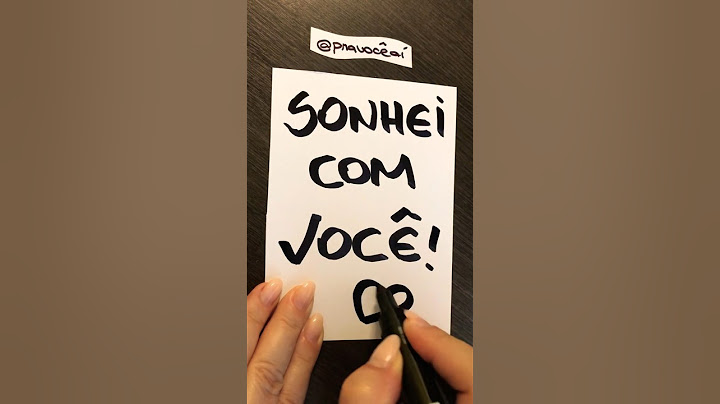 @pravocêaí
SONHEI
COM
VOCÊ!